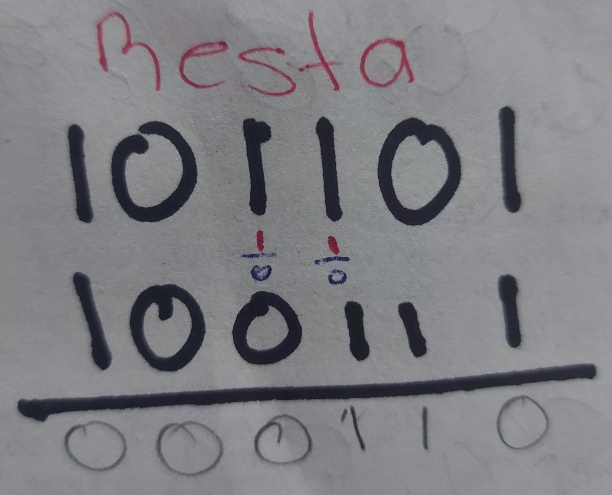 Resta
101101
1 1
0 0
100111
000110